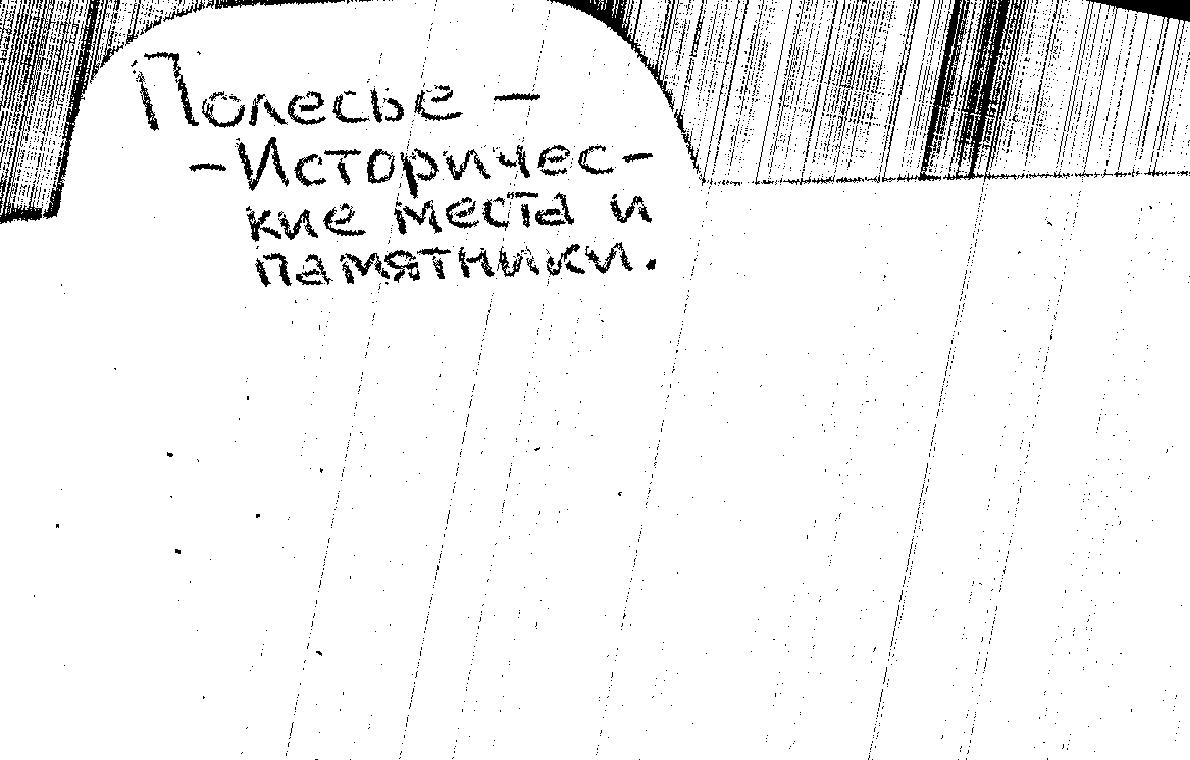 Полесье –
– Историчес-
кие места и
памятники.